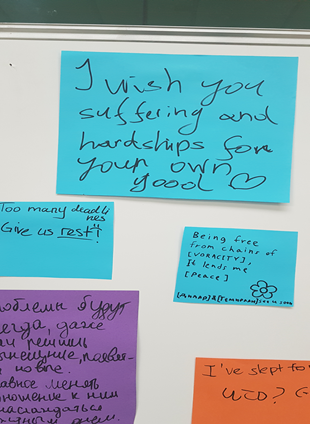 I wish you
suffering and
hardships for
your own
good ♡
Too many deadli
nes
Give us rest!
Being free
from chains of
[VORACITY],
It lends me
[Peace]
роблемы будут
егда, даже
решишь
нынешние, появят
новые.
авное менять
тношение к ним
наслаждаться
днём.
I've slept fo
что?